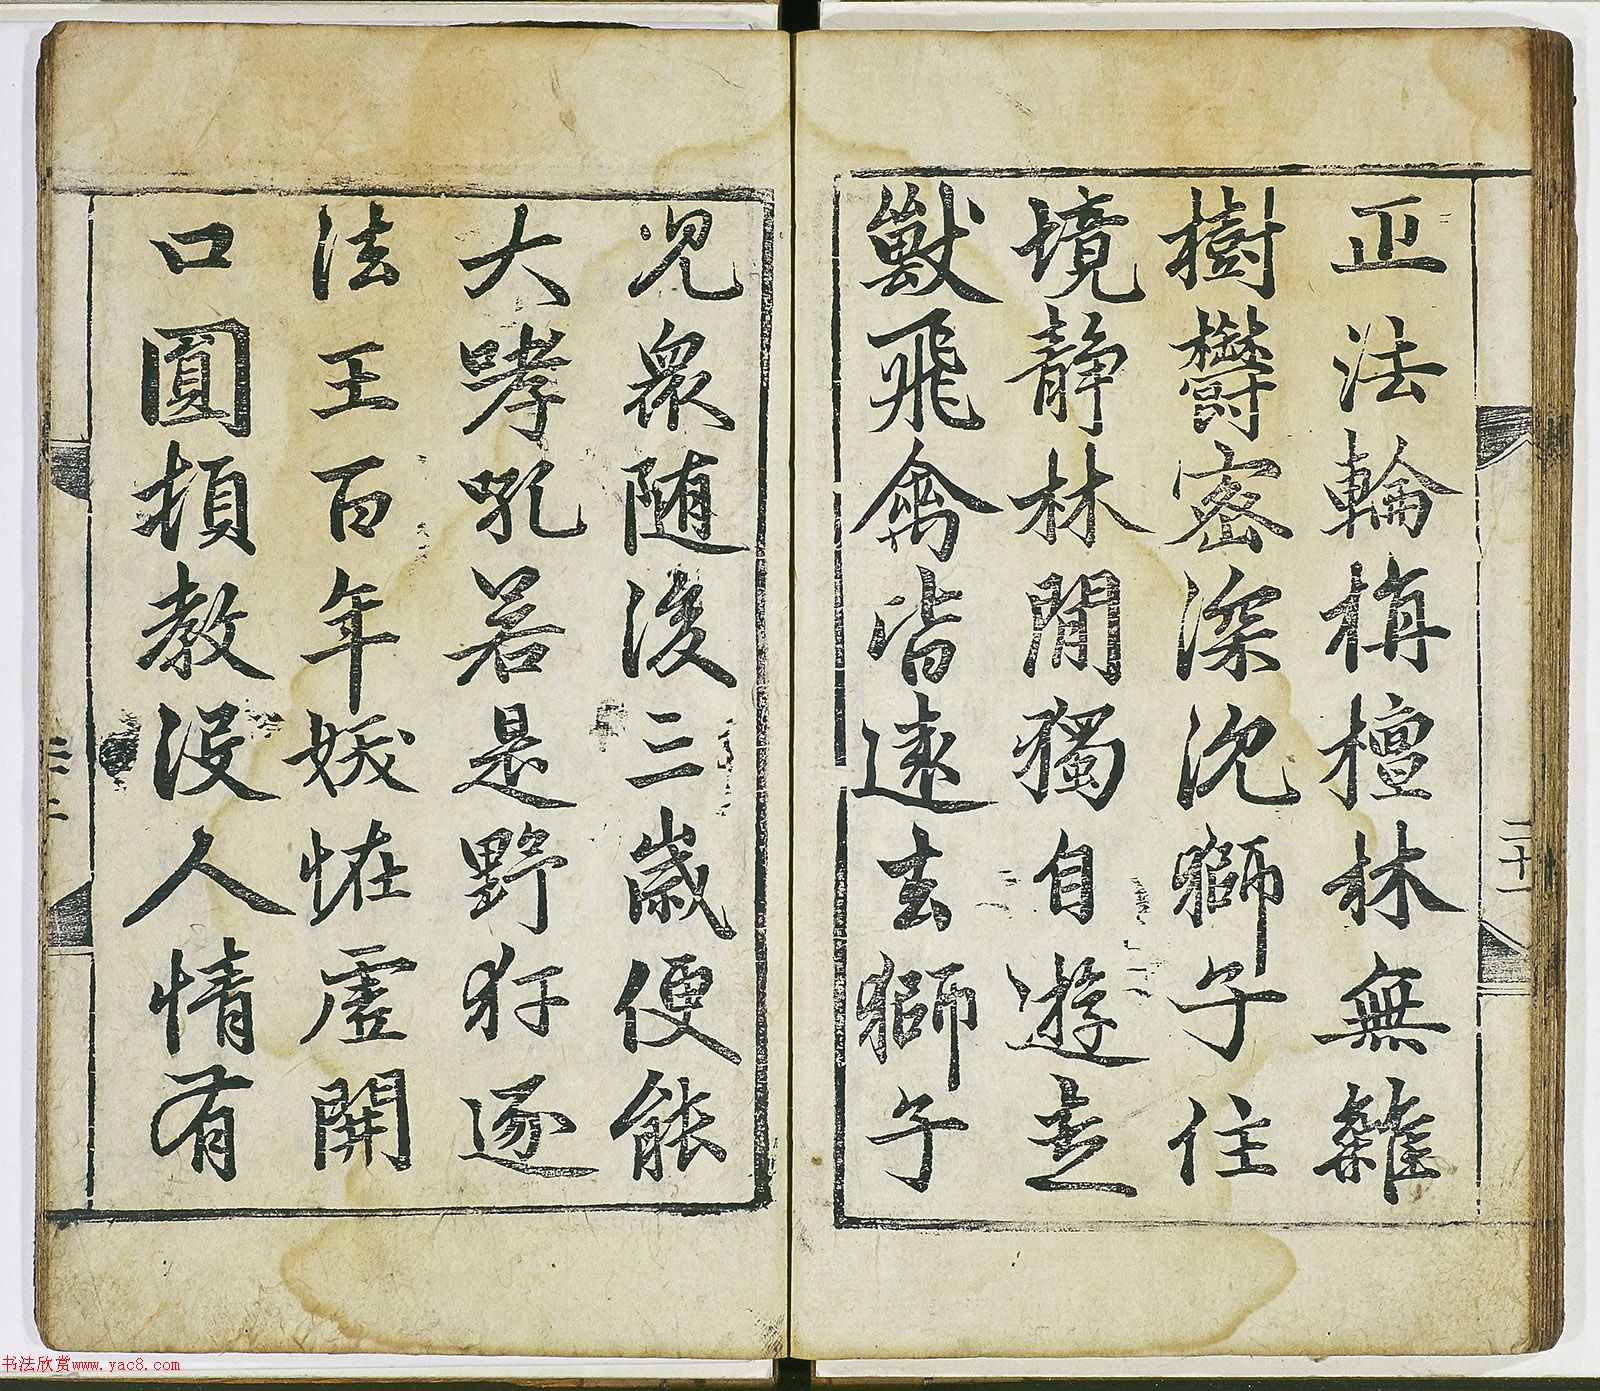 正法輪栴檀林無雜
樹欝密深沈獅子住
境静林間獨自遊走
獸飛禽皆遠去獅子
兒衆随後三歲便能
大哮吼若是野犴逐
法王百年妖恠虛開
口圓頓教没人情有
二十一
书法欣赏www.yac8.com